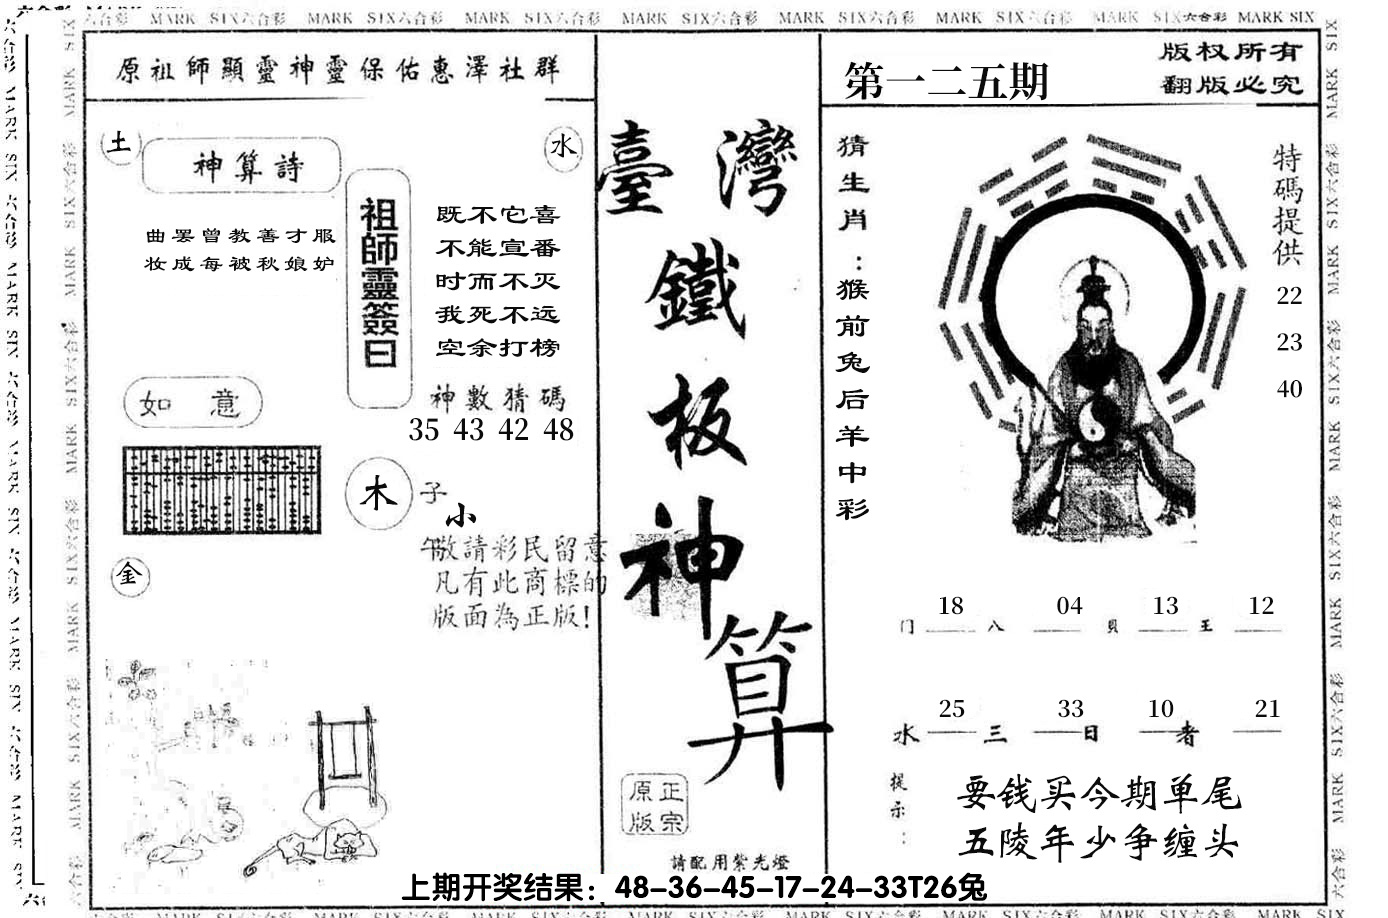 六合彩 MARK SIX六合彩 MARK SIX六合彩 MARK SIX六合彩 MARK SIX六合彩 MARK SIX六合彩 MARK SIX六合彩 MARK SIX六合彩 MARK SIX
原祖師顯靈神靈保佑惠澤社群
土
神算詩
水
曲罢曾教善才服
妆成每被秋娘妒
祖師靈簽曰
既不它喜
不能宣番
时而不灭
我死不远
空余打榜
神數猜碼
35 43 42 48
如 意
木
子
小
午
敬請彩民留意
凡有此商標的
版面為正版!
金
臺灣
鐵
板
神
算
原正
版宗
請配用紫光燈
第一二五期
版权所有
翻版必究
猜生肖:猴前兔后羊中彩
特碼提供
22
23
40
18 04 13 12
门 八 贝 王
25 33 10 21
水 三 日 者
提示:
要钱买今期单尾
五陵年少争缠头
上期开奖结果：48-36-45-17-24-33T26兔